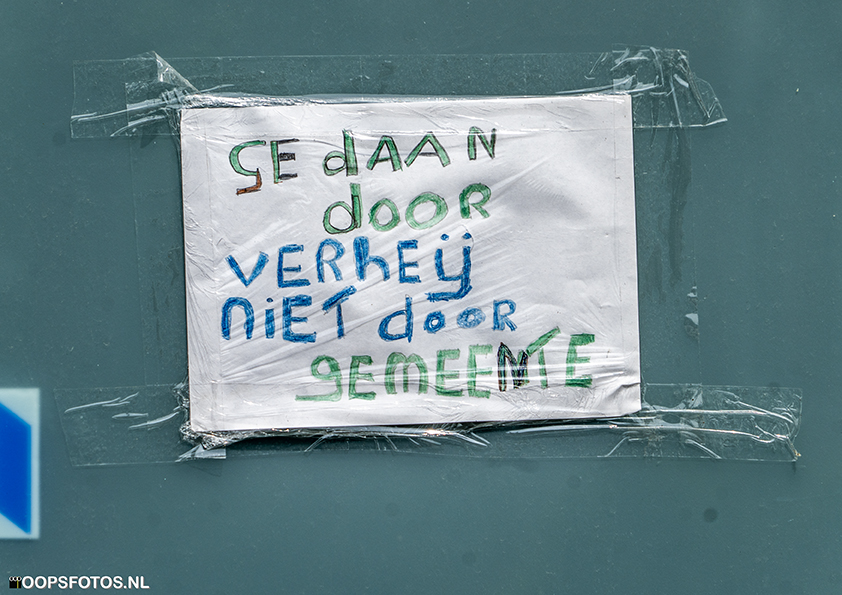 GE dAAN
dooR
VERhEij
NiET dooR
gEMEENTE
OOPSFOTOS.NL